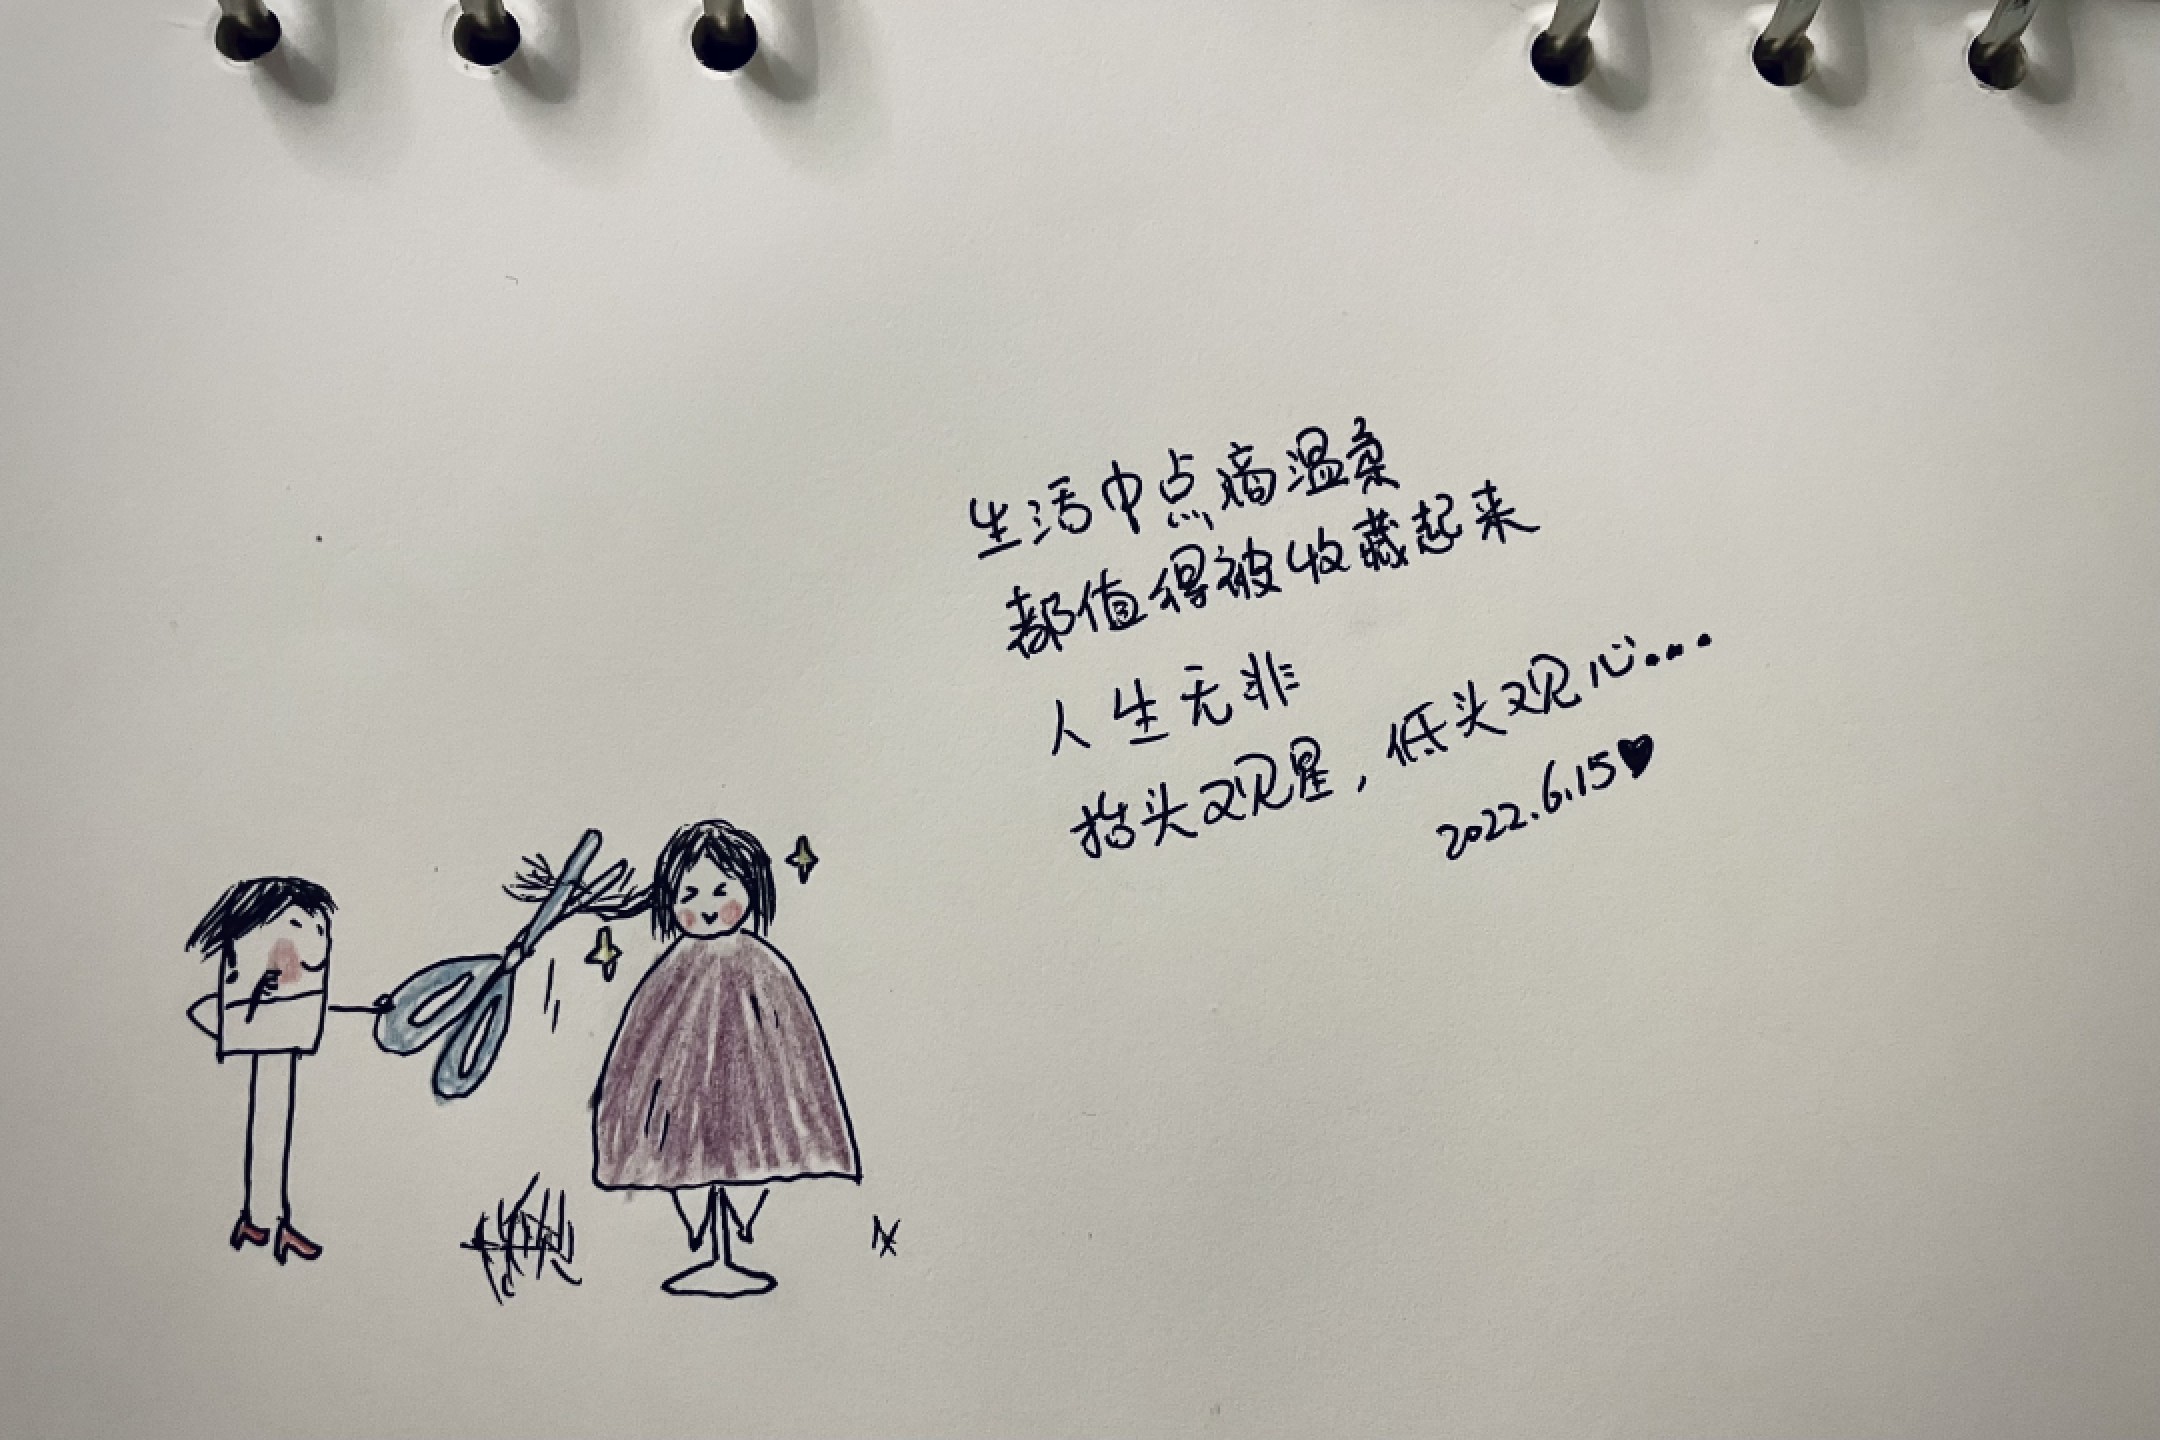 生活中点滴温柔
都值得被收藏起来
人生无非
抬头观星，低头观心...
2022.6.15♥